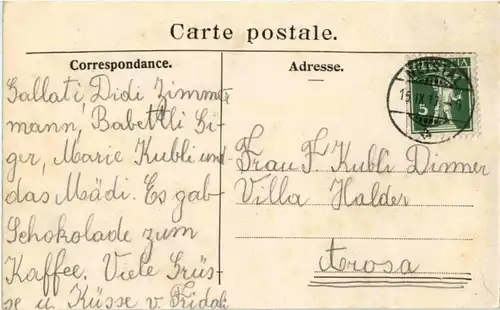 Carte postale.
Correspondance.
Adresse.
5
Gallati, Didi Zimmer
mann, Babettli Si-
ger, Marie Kubli und
das Mädi. Es gab
Schokolade zum
Kaffee. Viele Grüs-
se u. Küsse v. Fridali
Frau F. Kubli Dinner
Villa Halder
Arosa